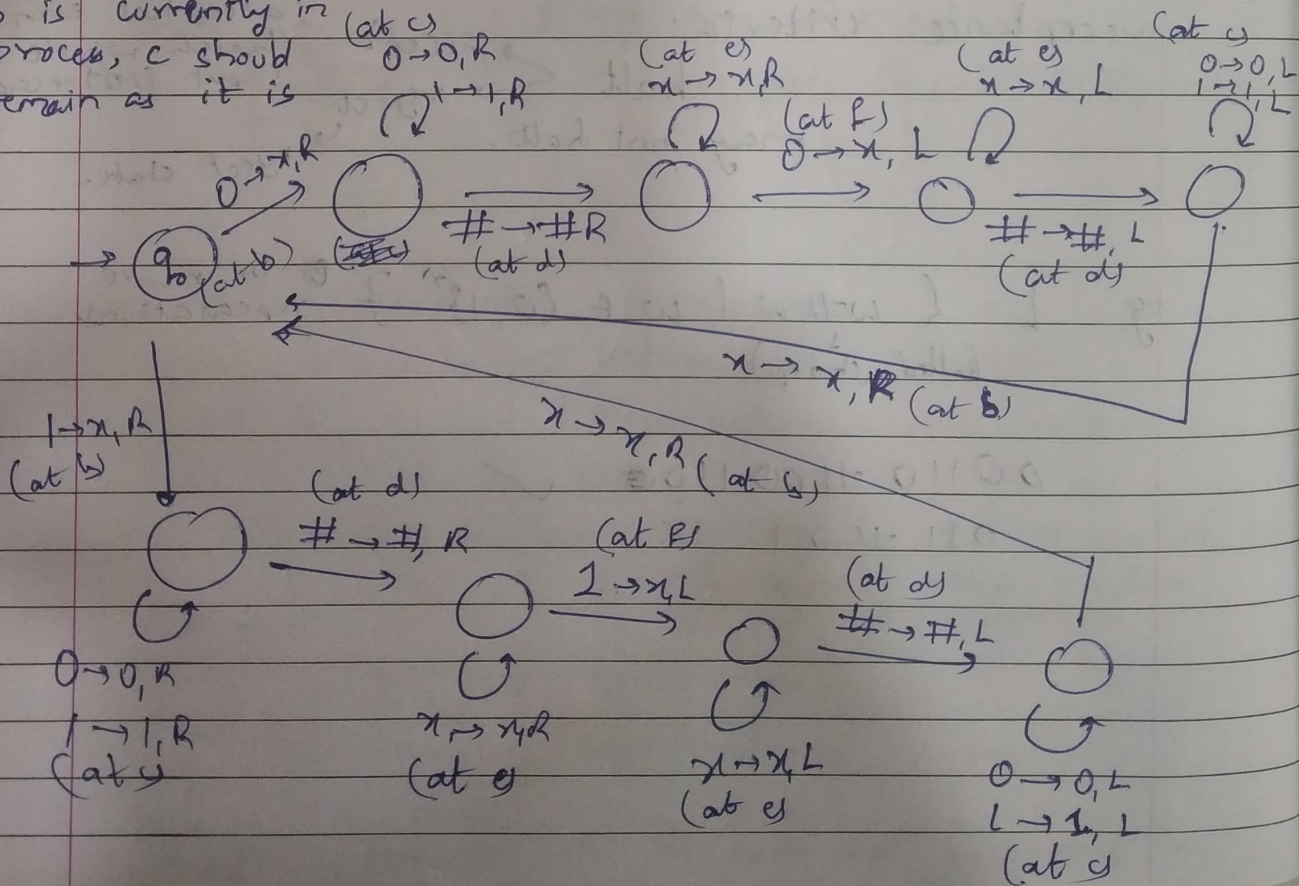 is currently in
process, c should
remain as it is
(at c)
0→0,R
1→1,R
(at e)
x→x,R
(at f)
0→x, L
(at e)
x→x, L
(at c)
0→0,L
1→1,L
0→x,R
q0 (at b)
#→#R
(at d)
#→#, L
(at d)
x→x, R (at b)
x→x,R (at b)
1→x, R
(at b)
(at d)
#→#, R
(at f)
1→x,L
(at d)
#→#, L
0→0,R
1→1,R
(at c)
x→x,R
(at e)
x→x,L
(at e)
0→0,L
1→1, L
(at c)